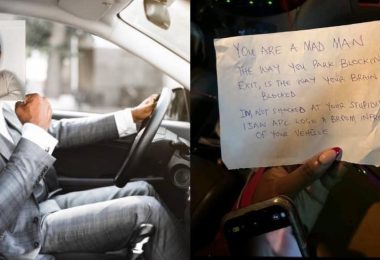 YOU ARE A MAD MAN
THE WAY YOU PARK BLOCKIN
EXIT, IS THE WAY YOUR BRAIN
BLOCKED
I'M NOT SHOCKED AT YOUR STUPID
I SAW APC LOGO & BROOM IN FR
OF YOUR VEHICLE